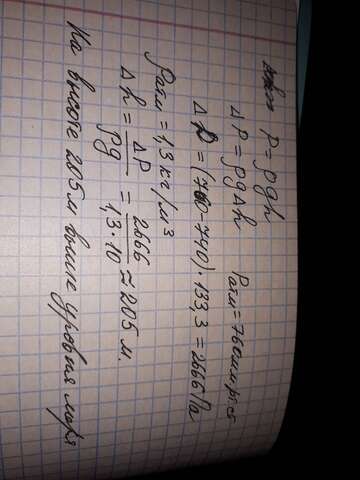 P = ρgh
ΔP = ρgΔh Pатм = 760 мм рт. ст
ΔP = (760-740) · 133,3 = 2666 Па
ρатм = 1,3 кг/м³
Δh = ΔP/ρg = 2666/1,3·10 ≈ 205 м.
На высоте 205м выше уровня моря